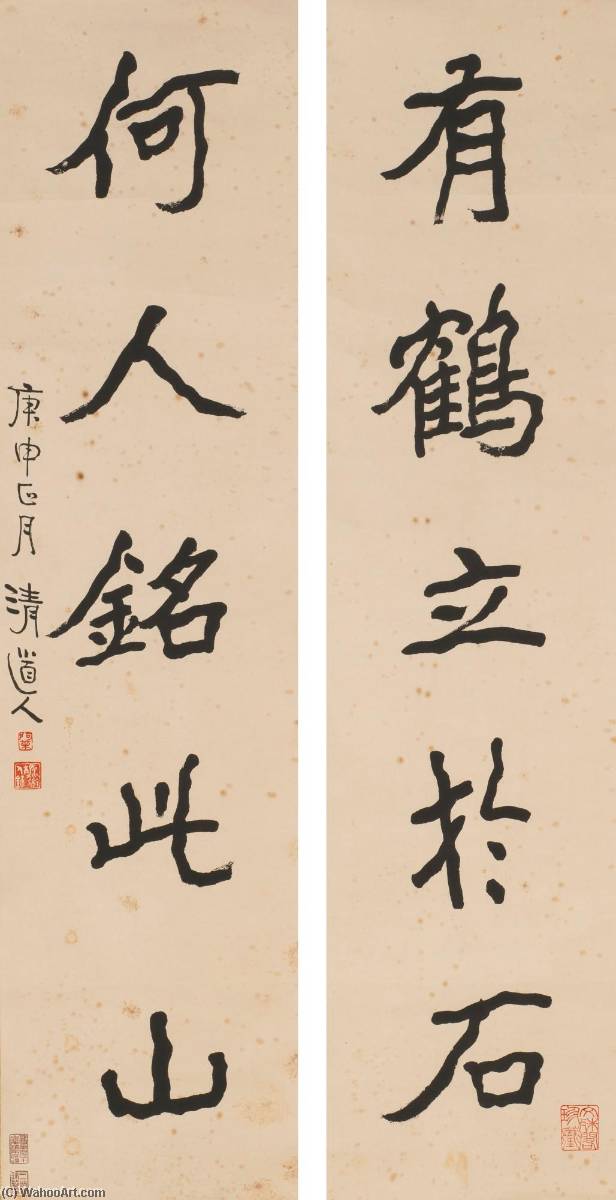 有鶴立於石
何人銘此山
庚申正月 清道人
(C) WahooArt.com